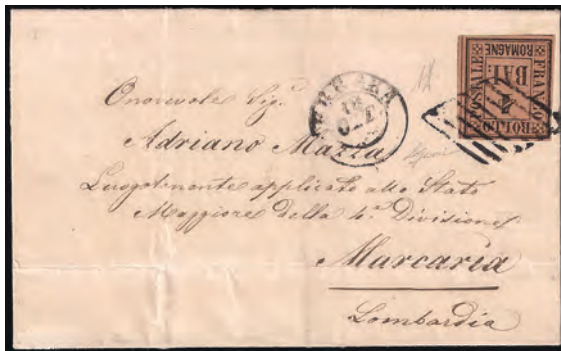 FRANCO
BOLLO
POSTALE
ROMAGNE
BAI
4
FERRARA
Onorevole Sig.
Adriano Mazza
Luogotenente applicato allo Stato
Maggiore della 4ª Divisione
Marcaria
Lombardia